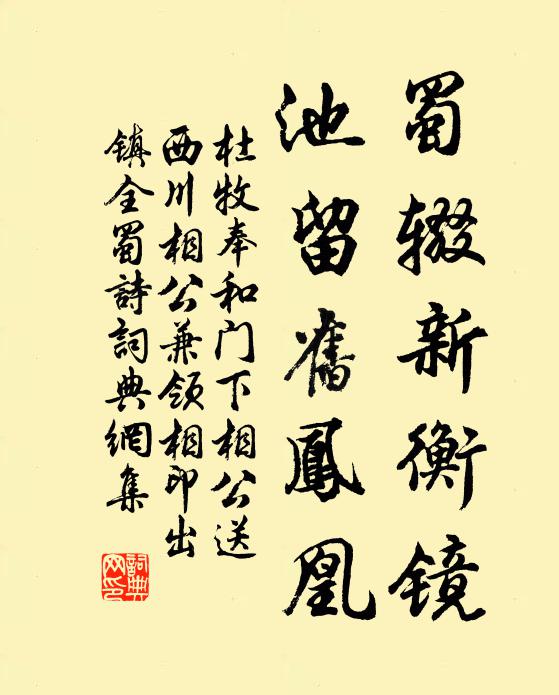 蜀辍新衡镜
池留舊鳳凰
杜牧奉和门下相公送
西川相公兼领相印出
镇全蜀詩詞典網集
詞典
网印